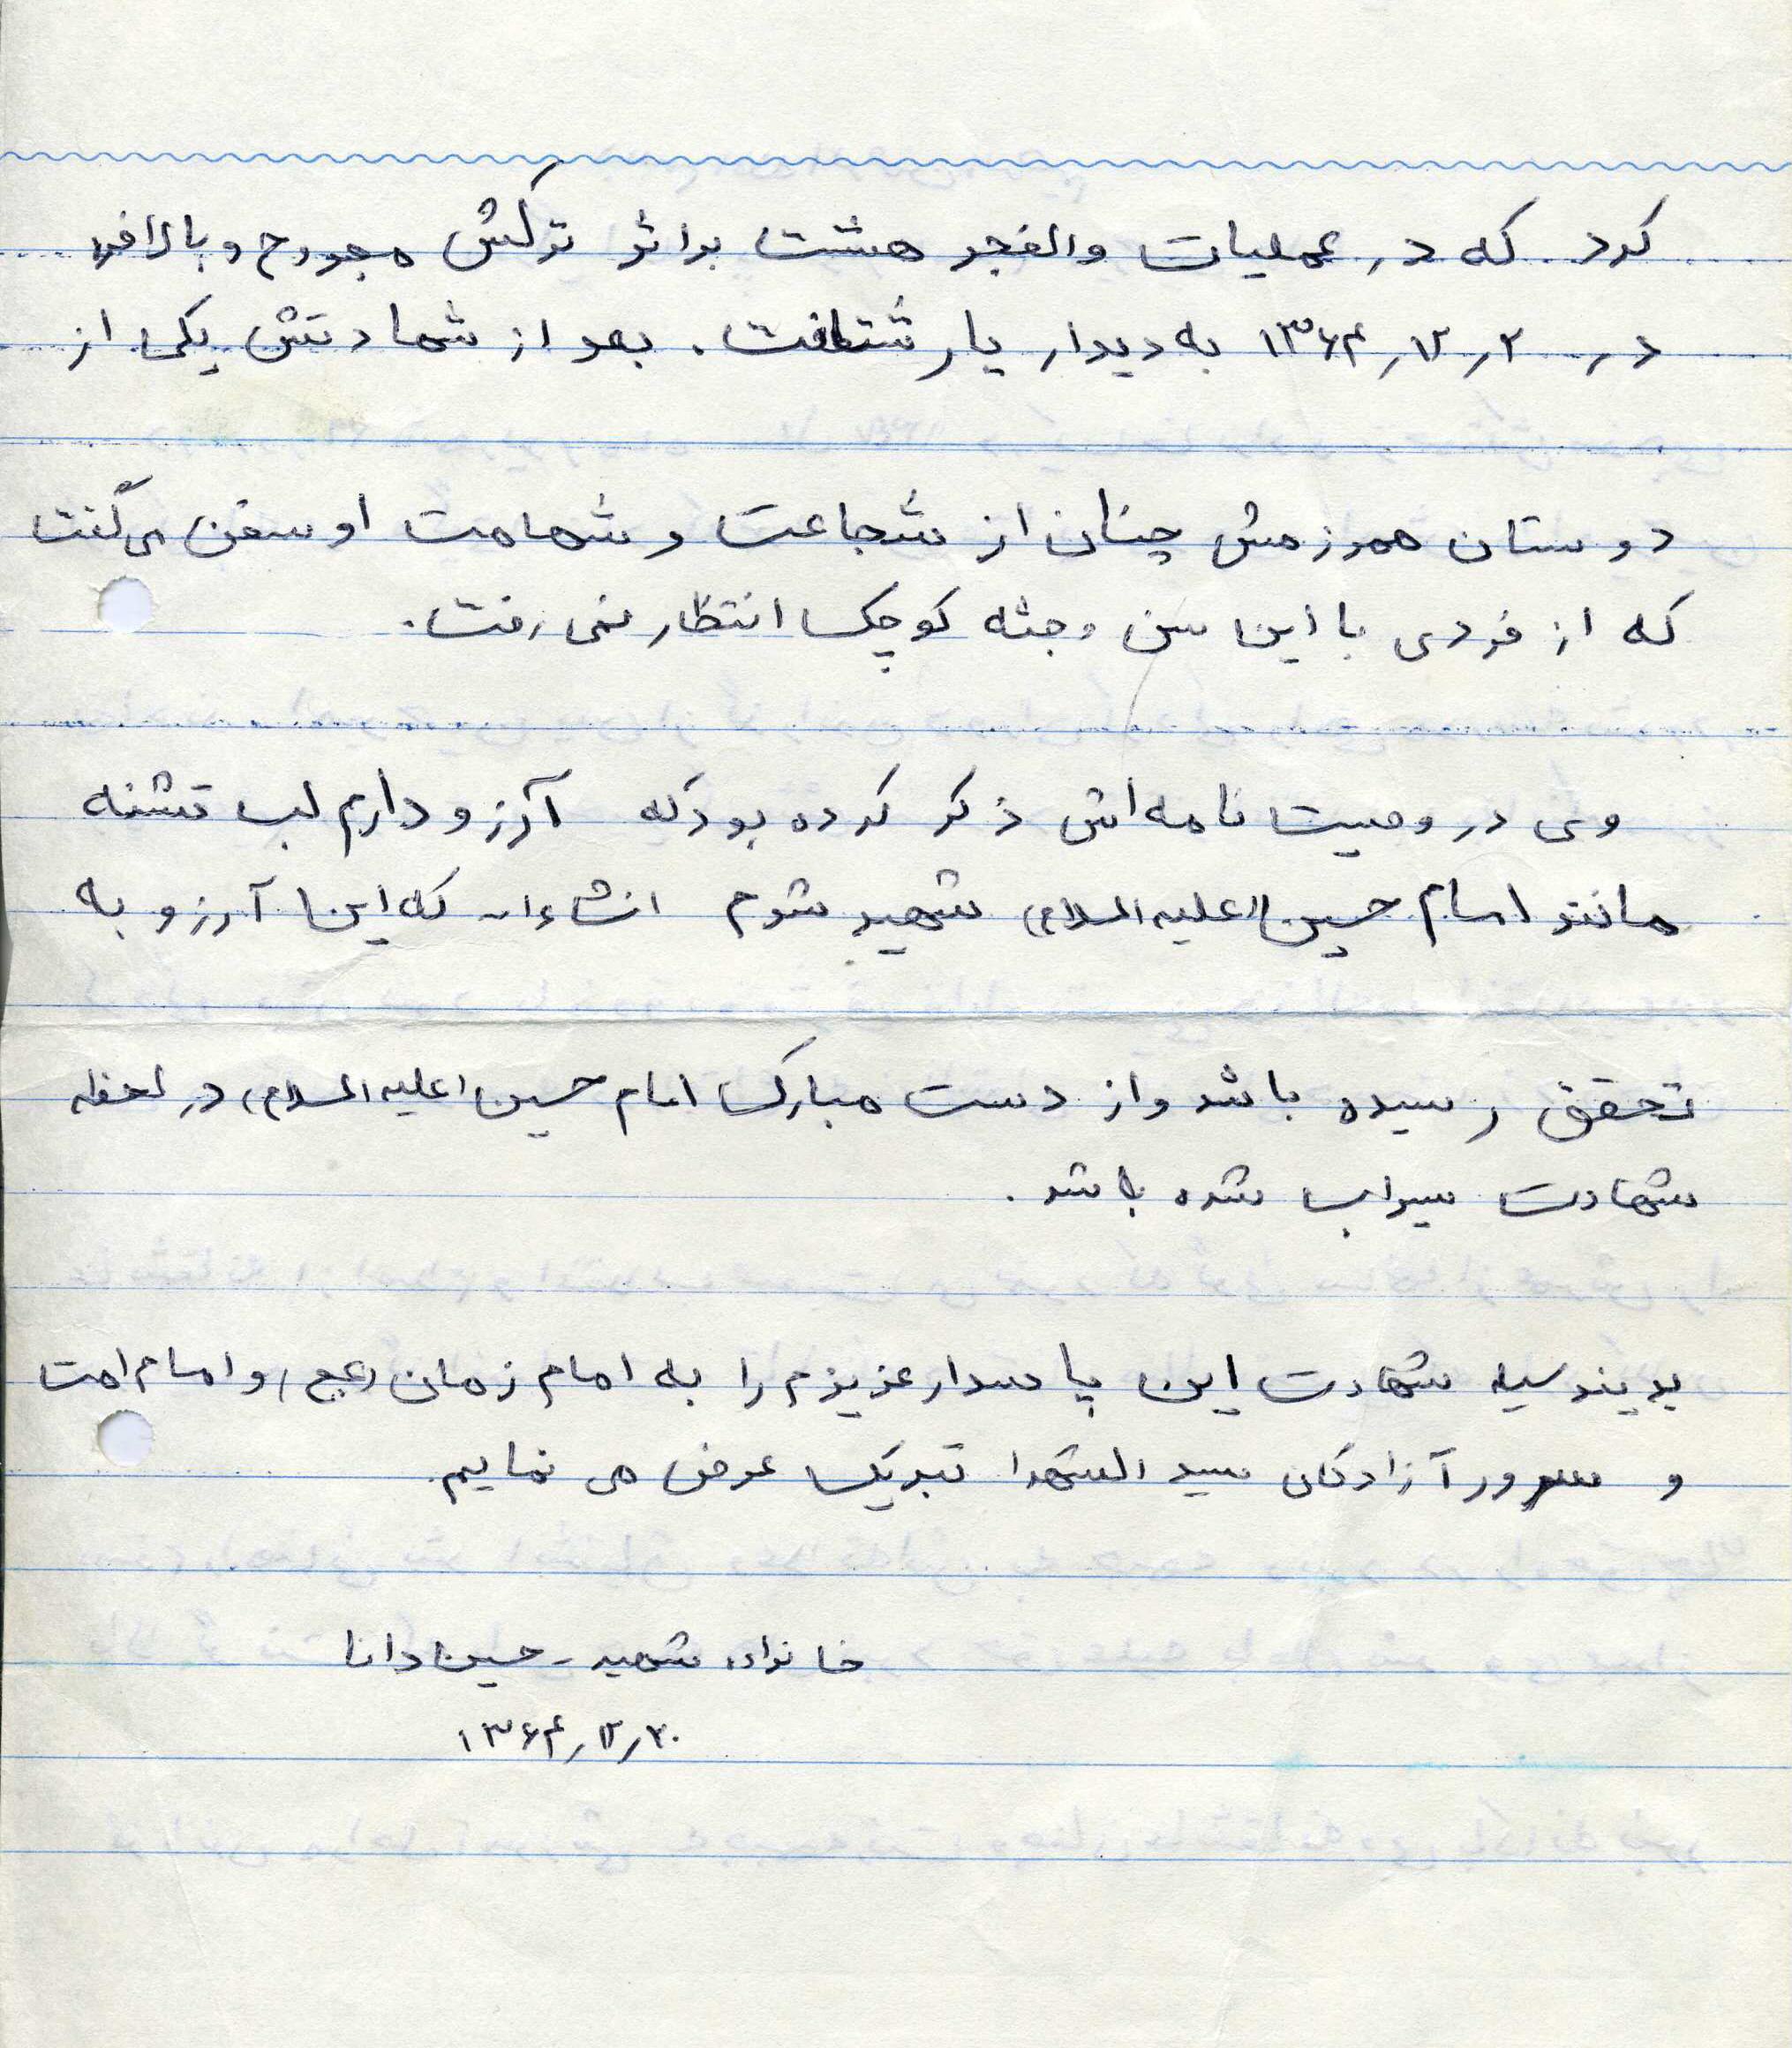 کرد که در عملیات والفجر هشت براثر ترکش مجروح وبالاخره
در ۱۳۶۴٫۱۲٫۲ به دیدار یار شتافت. بعد از شهادتش یکی از
دوستان همرزمش چنان از شجاعت و شهامت او سخن می‌گفت
که از فردی با این سن وجثه کوچک انتظار نمی رفت.
وی در وصیت نامه‌اش ذکر کرده بود که آرزو دارم لب تشنه
مانند امام حسین (علیه السلام) شهید شوم انشاءا... که این آرزو به
تحقق رسیده باشد و از دست مبارک امام حسین (علیه السلام) در لحظه
شهادت سیراب شده باشد.
بدینوسیله شهادت این پاسدار عزیزم را به امام زمان (عج) و امام امت
و سرور آزادگان سید الشهدا تبریک عرض می نمایم.
خانواده شهید - حسین دانا
۱۳۶۴٫۱۲٫۲۰